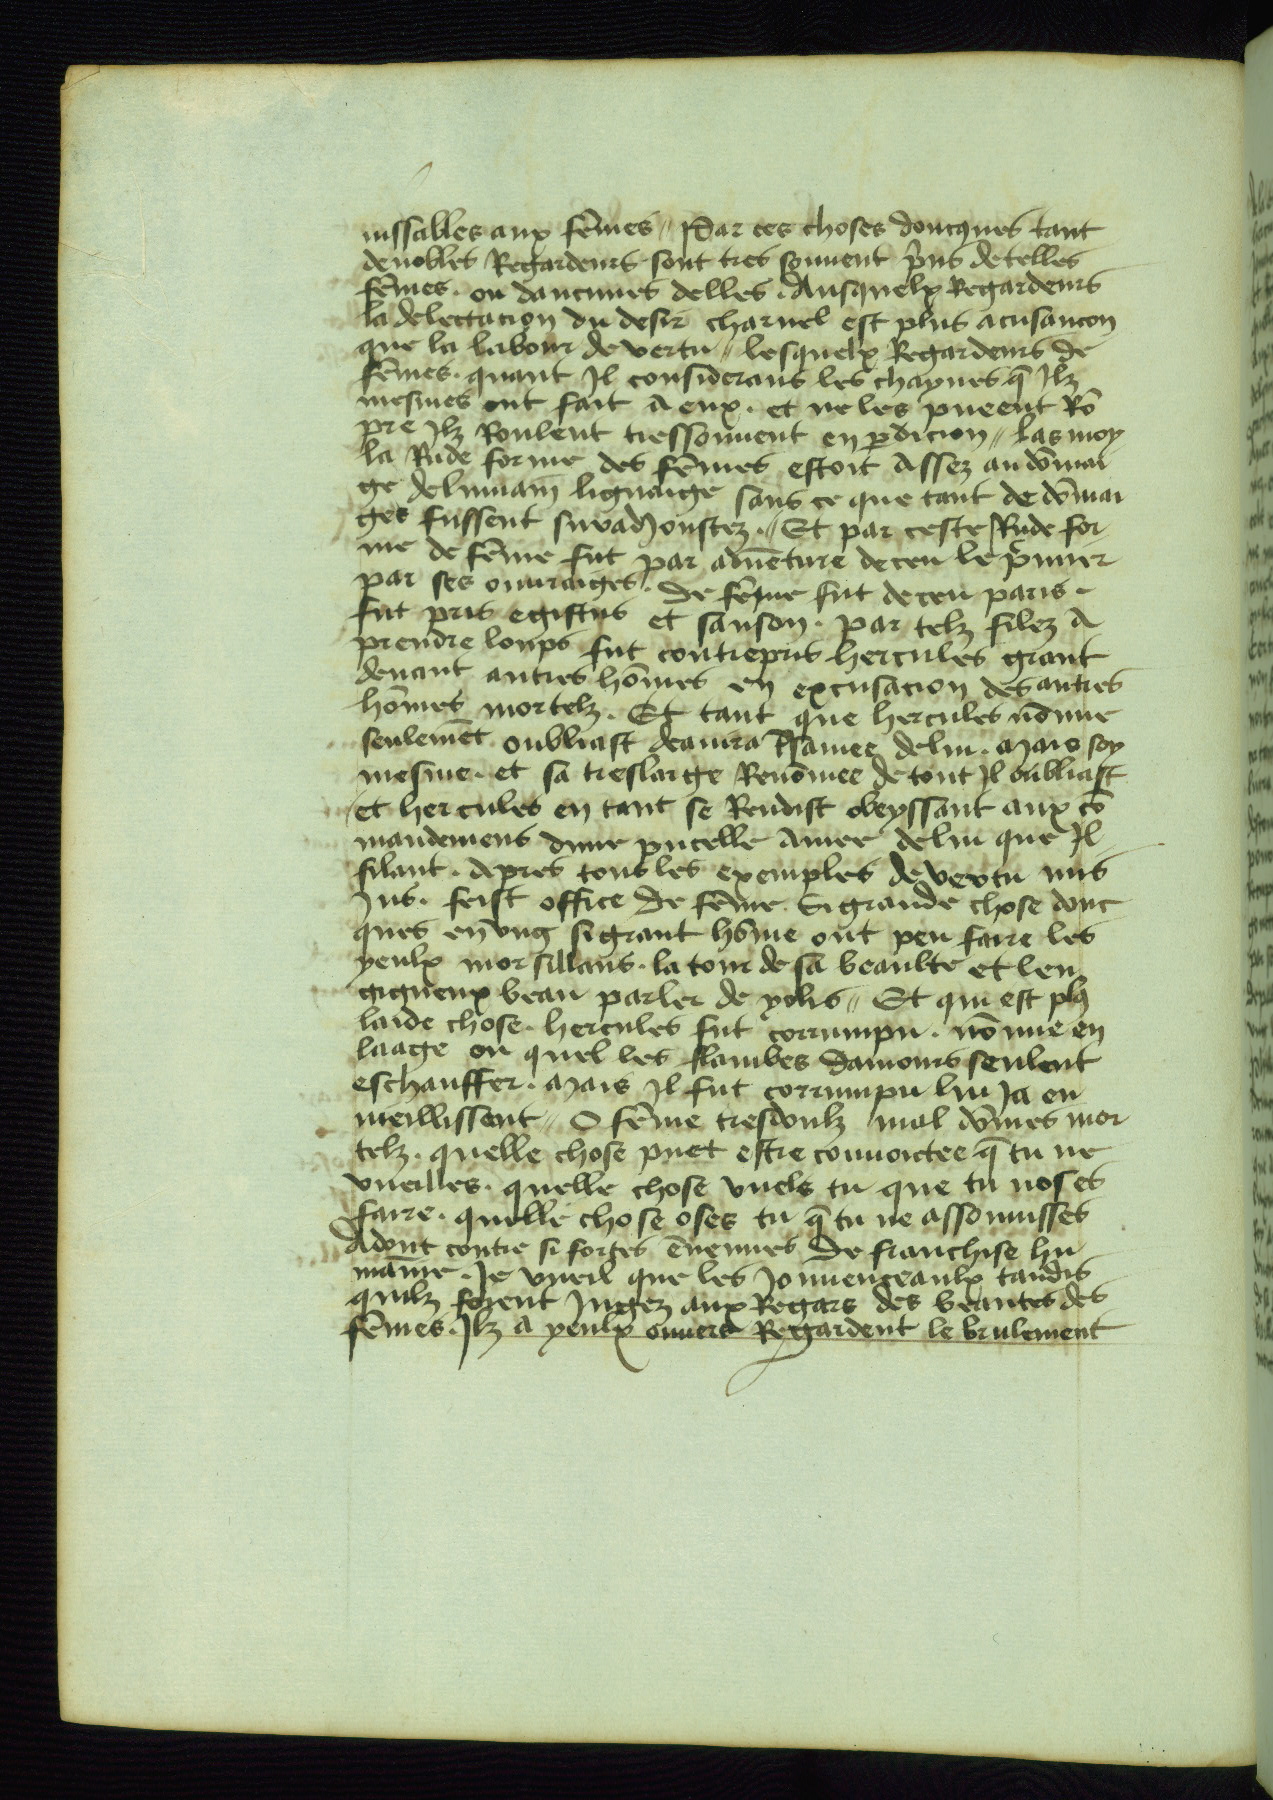 nissables aux fēmes // Par ces choses doncques tant
de nobles Regardeurs sont tres souuent p̄ns de telles
fēmes . ou daucunes delles . Ausquelx Regardeurs
la delectacion du desir charnel est plus acusancon
que la labour de vertu // lesquelx Regardeurs de
fēmes . quant Il considerans les chaynes q̄ Ilz
mesmes ont fait a eux . et ne les pueent Rō
pre Ilz Roulent tressouuent en pdicion // las moy
la Rude forme des fēmes estoit Assez au dōmai
ge delumain lignaige sans ce que tant de dōmai
ges fussent suradioustez . // Et par ceste Rude for
me de fēme fut par aduēture deceu le p̄mier
par ses ouuraiges . de fēme fut deceu paris .
fut pris egistus et sanson . par telz filez a
prendre loups fut contrepris hercules grant
deuant autres hōmes en excusacion des autres
hōmes mortelz . Et tant que hercules nōmie
seulemēt oubliast deanira lamee de lui . Mais soy
mesme . et sa treslarge Renōmee de tout Il oubliast
et hercules en tant se Rendist obeyssant aux cō
mandemens dune pucelle Amee de lui que Il
filant . Apres tous les exemples de vertu mis
Jus . feist office de fēme . Si grande chose donc
ques en vng si grant hōme ont peu faire les
yeulx morsillans . la tour de sa beaulte et len
gigneux beau parler de yolis // Et qui est plꝯ
laide chose . hercules fut corrumpu . nō mie en
laage ou quel les flambes damours seulent
eschauffer . Mais Il fut corrumpu lui Ja en
vieillissent // O fēme tresdoulz mal dōmes mor
telz . quelle chose puet estre conuoictee q̄ tu ne
vueilles . quelle chose vuels tu que tu noses
faire . quelle chose oses tu q̄ tu ne assouuisses
Adont contre si fortes ēnemies de franchise hu
maine . Je vueil que les Jouuenceaulx tandis
quilz soient Jugez aux Regars des beautes des
fēmes . Ilz a yeulx ouuers Regardent le brulement